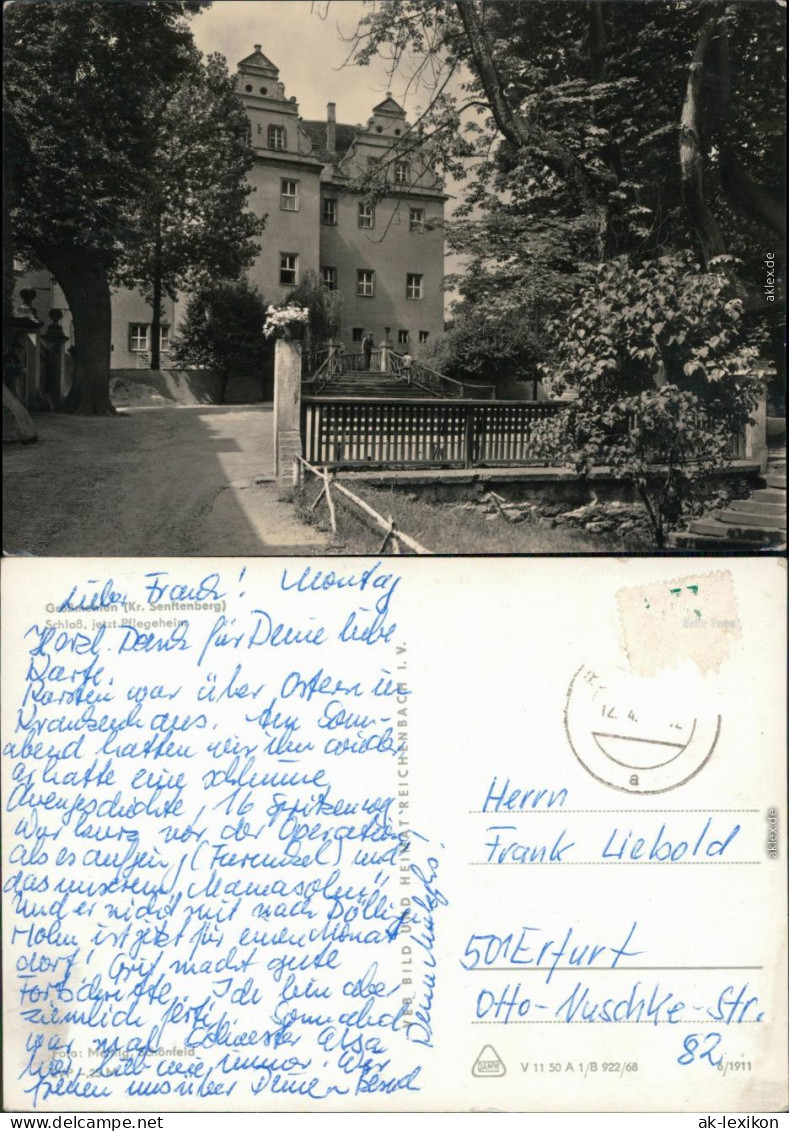 aklex.de
Liebe Frank! Montag
Großmehlen (Kr. Senftenberg)
Schloß, jetzt Pflegeheim
Herzl. Dank für Deine liebe
Karte.
Karsten war über Ostern im
Krankenhaus. Am Sonn-
abend hatten wir ihn wieder
Er hatte eine schlimme
16 Spritzen
War kurz vor der Operation
als es aufging, (Furunkel) und
das unserem „
und er nicht mit nach Dölli
ist jetzt für einen Monat
dort! macht gute
Fortschritte. Ich bin aber
ziemlich fertig. Sonnabend
war mal Schwester
hier, lieb wie immer. Wir
freuen uns über Deinen Besuch
Deine
Foto: Schönfeld
VEB BILD UND HEIMAT REICHENBACH I. V.
Echt Foto
12. 4.
a
Herrn
Frank Liebold
501 Erfurt
Otto-Nuschke-Str.
82
V 11 50 A 1/B 922/68
6/1911
aklex.de
www.ak-lexikon.de
ak-lexikon.com